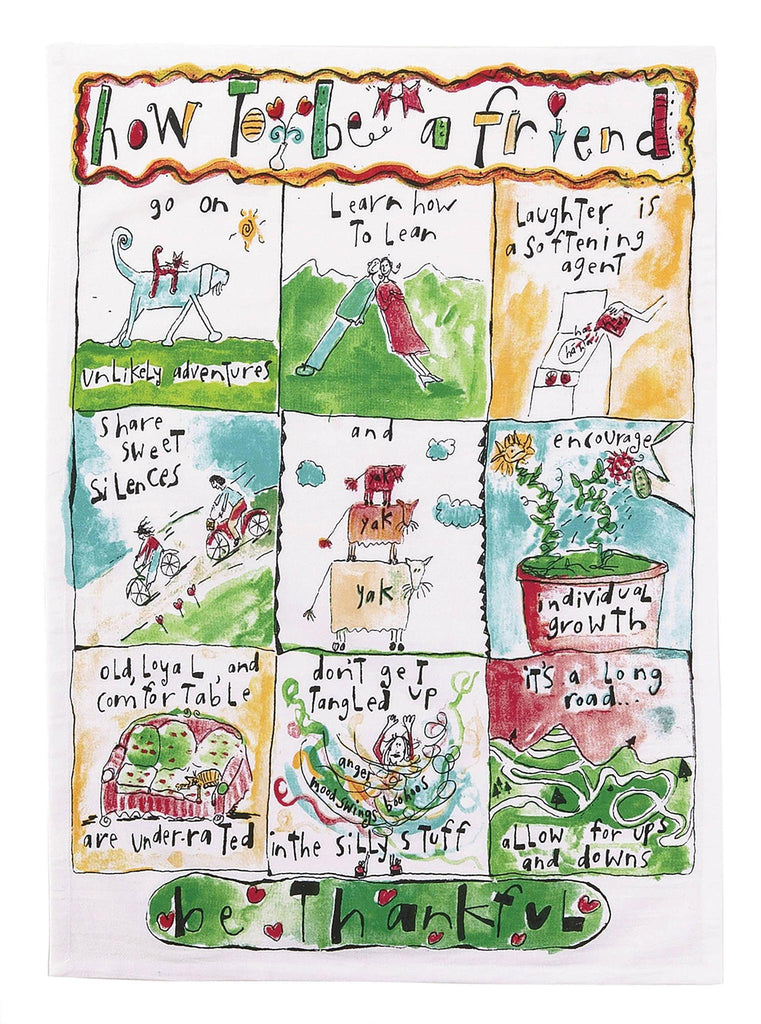 how To be a friend
go on
unlikely adventures
Learn how
To Lean
Laughter is
a softening
agent
ha!
ha! ha!
share
sweet
silences
and
yak
yak
yak
encourage
individual
growth
old, loyal, and
comfortable
are under-rated
don't get
Tangled up
anger
moodswings boohoos
in the silly stuff
it's a long
road...
allow for ups
and downs
be Thankful